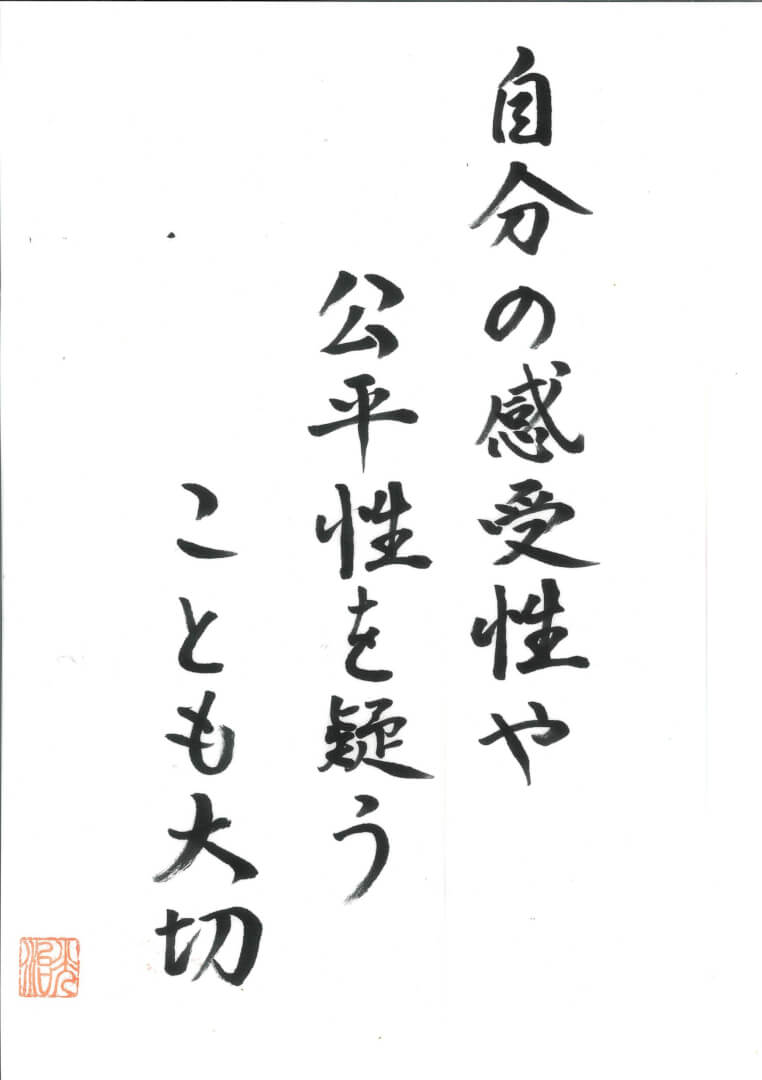 自分の感受性や
公平性を疑う
ことも大切